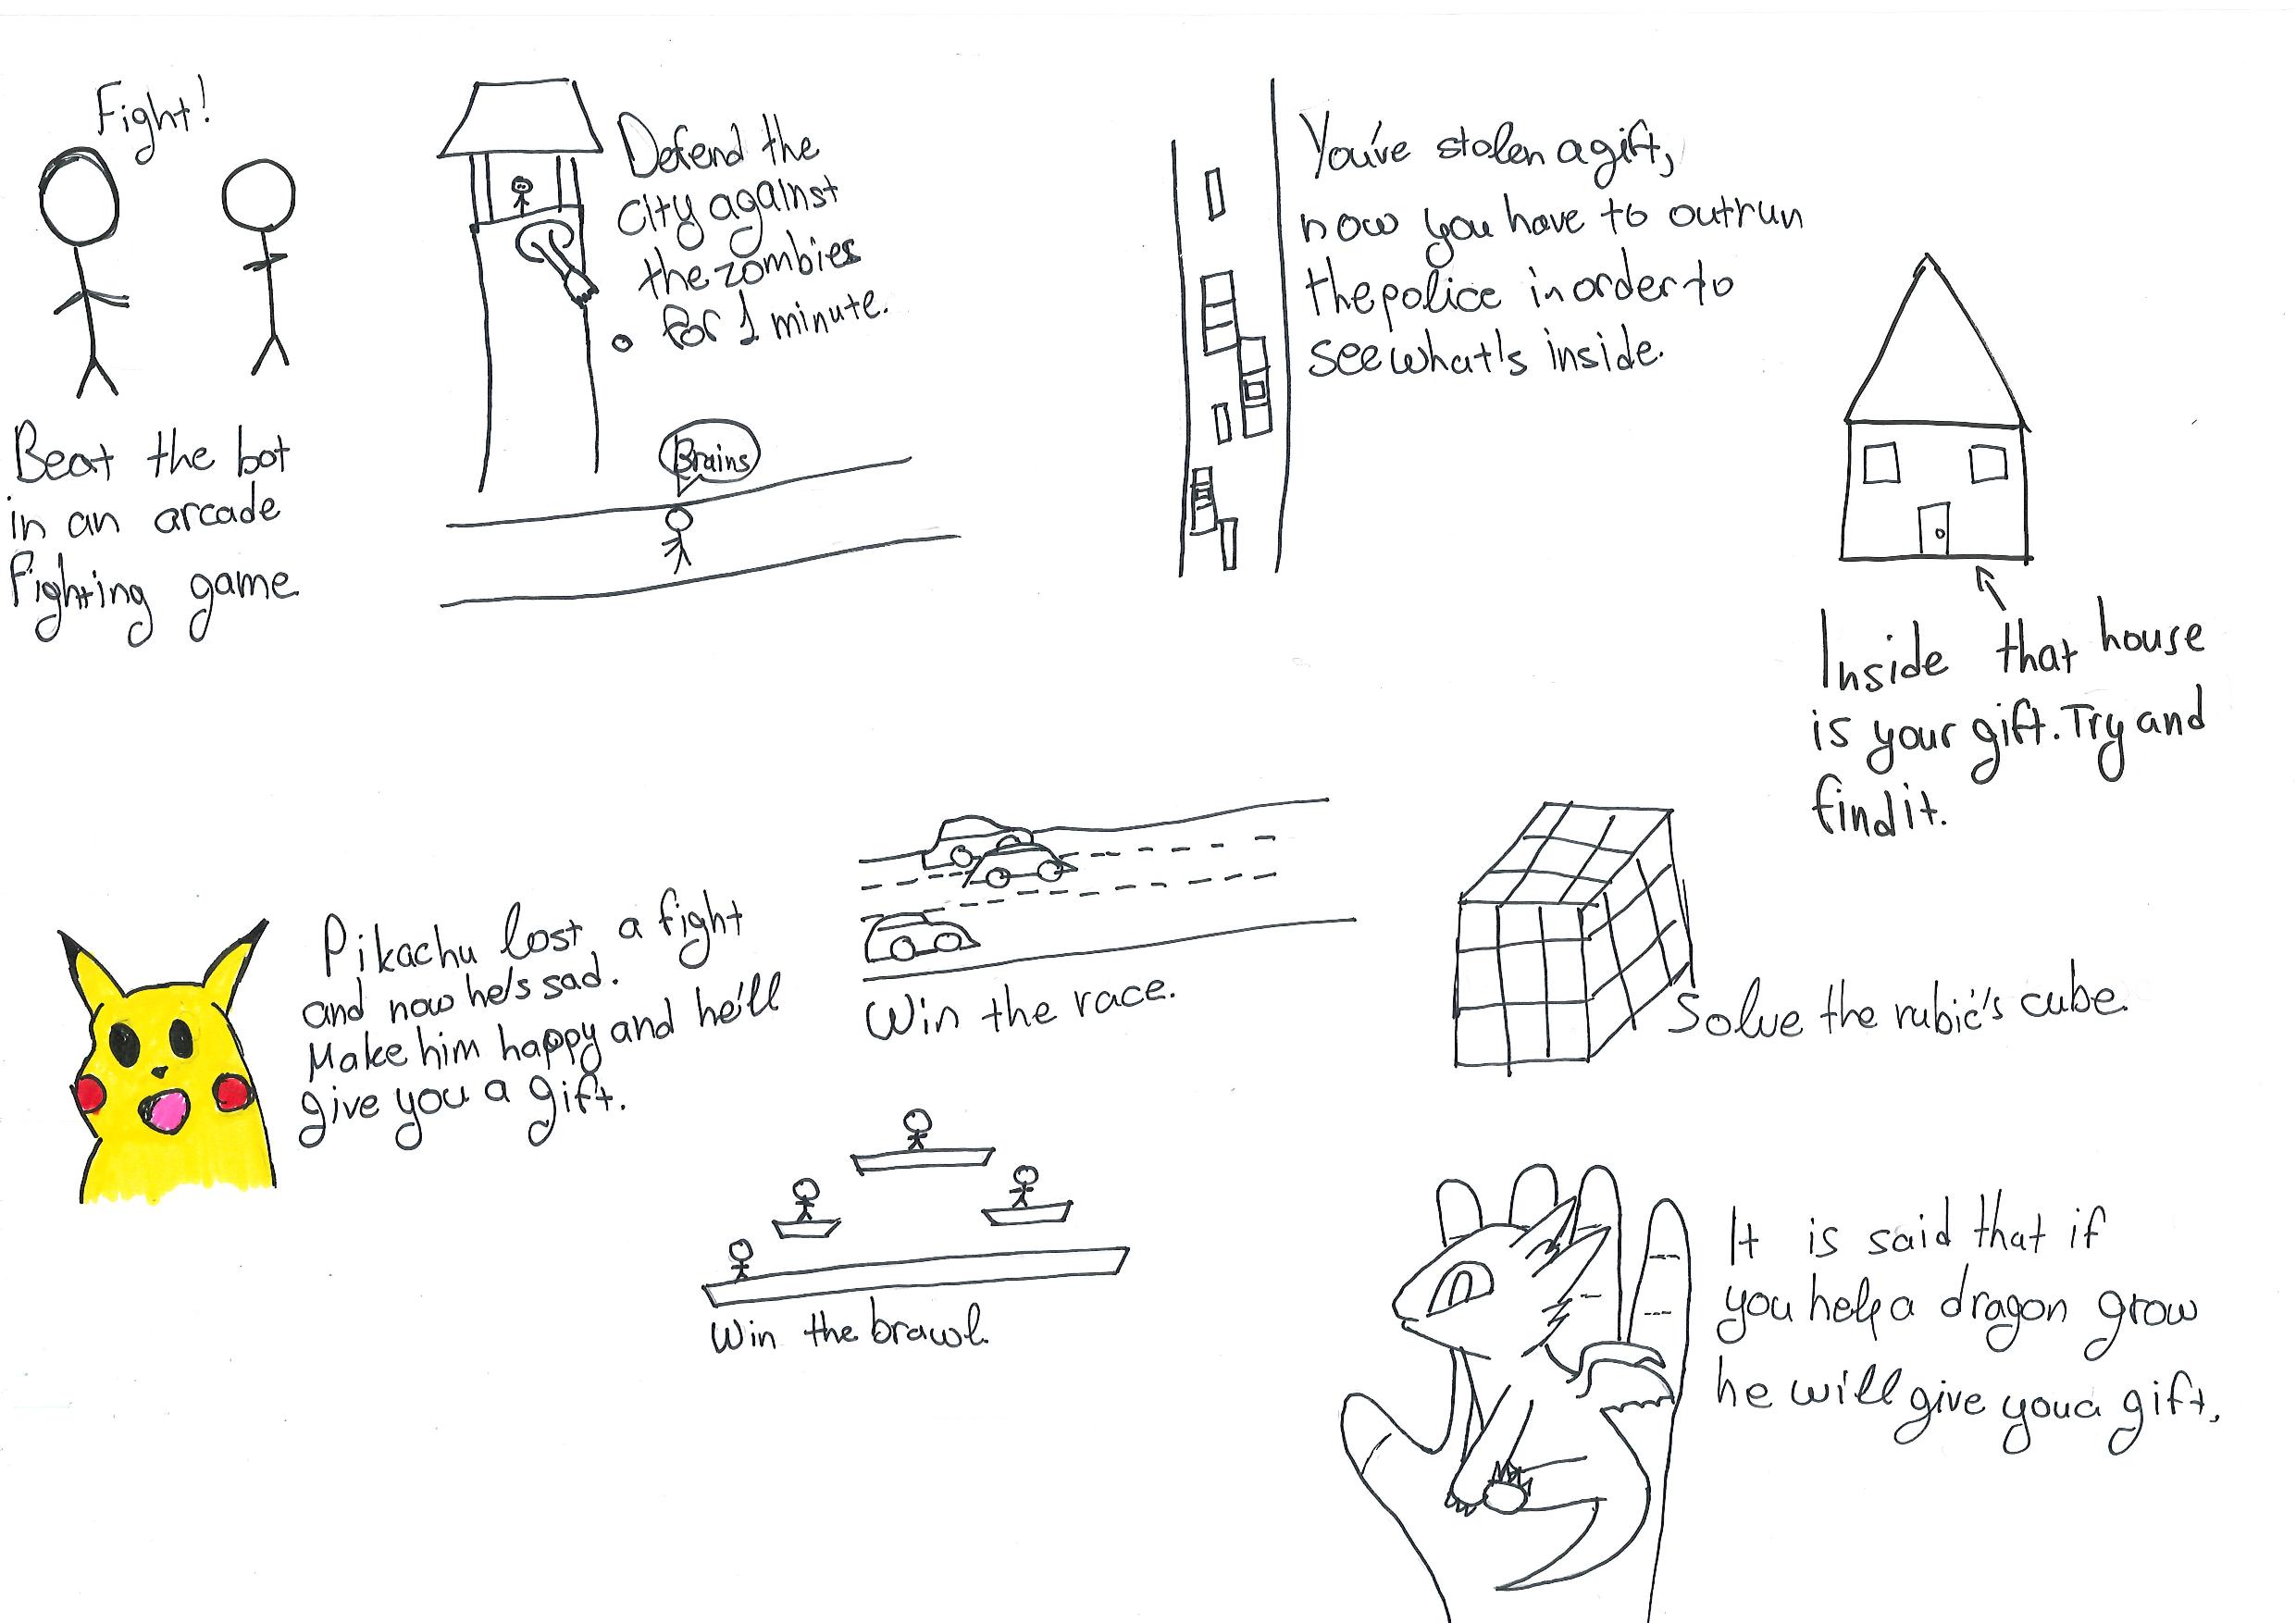 Fight!
Beat the bot
in an arcade
fighting game
Defend the
city against
the zombies
for 1 minute.
Brains
You've stolen a gift,
now you have to outrun
the police in order to
see what's inside.
Inside that house
is your gift. Try and
find it.
Pikachu lost a fight
and now he's sad.
Make him happy and he'll
give you a gift.
Win the race.
Solve the rubic's cube.
Win the brawl.
It is said that if
you help a dragon grow
he will give you a gift.